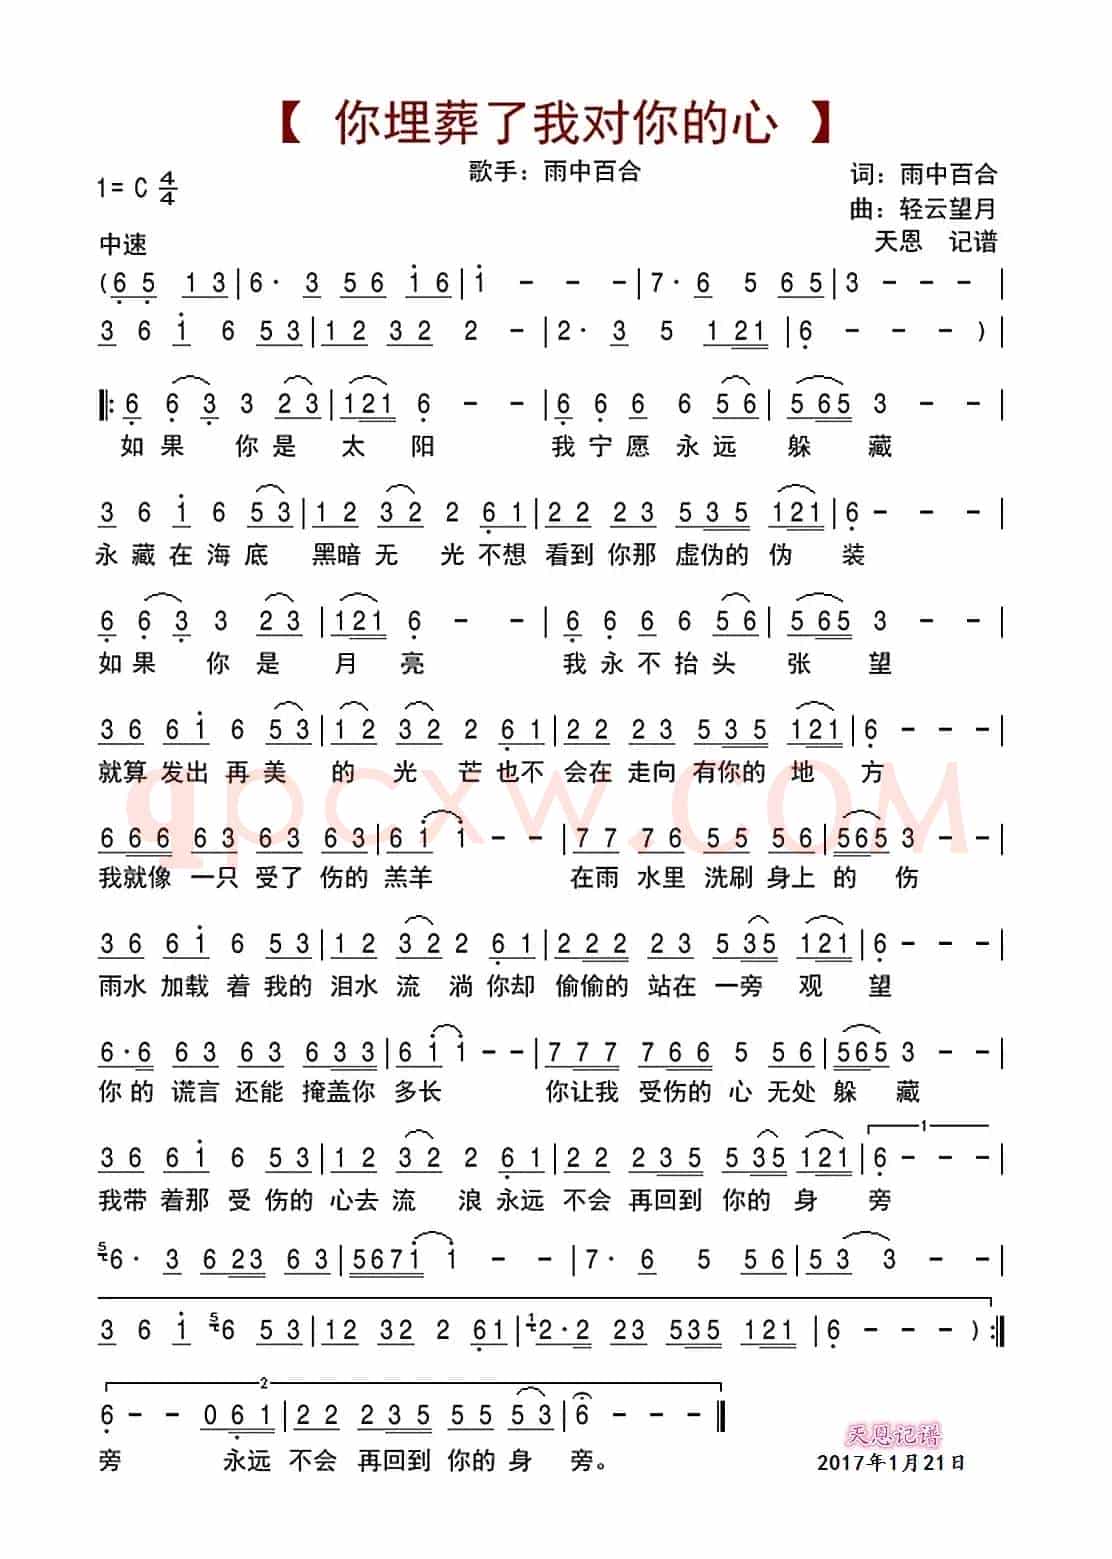 【 你埋葬了我对你的心 】
歌手：雨中百合
1= C 4/4
词：雨中百合
曲：轻云望月
中速
天恩 记谱
(6 5 1 3 | 6· 3 5 6 1 6 | 1 - - - | 7· 6 5 6 5 | 3 - - - |
3 6 1 6 5 3 | 1 2 3 2 2 - | 2· 3 5 1 2 1 | 6 - - - ) |
‖: 6 6 3 3 2 3 | 1 2 1 6 - - | 6 6 6 6 5 6 | 5 6 5 3 - - |
如 果 你 是 太 阳 我 宁 愿 永 远 躲 藏
3 6 1 6 5 3 | 1 2 3 2 2 6 1 | 2 2 2 3 5 3 5 1 2 1 | 6 - - - |
永 藏 在 海 底 黑暗 无 光 不想 看到 你那 虚伪的 伪 装
6 6 3 3 2 3 | 1 2 1 6 - - | 6 6 6 6 5 6 | 5 6 5 3 - - |
如 果 你 是 月 亮 我 永 不 抬 头 张 望
3 6 6 1 6 5 3 | 1 2 3 2 2 6 1 | 2 2 2 3 5 3 5 1 2 1 | 6 - - - |
就算 发出 再 美 的 光 芒 也不 会在 走向 有你的 地 方
qpcxw.com
6 6 6 6 3 6 3 6 3 | 6 1 1 - - | 7 7 7 6 5 5 5 6 | 5 6 5 3 - - |
我就像 一只 受了 伤的 羔羊 在雨 水里 洗刷 身上 的 伤
3 6 6 1 6 5 3 | 1 2 3 2 2 6 1 | 2 2 2 2 3 5 3 5 1 2 1 | 6 - - - |
雨水 加载 着 我的 泪水 流 淌 你却 偷偷的 站在 一旁 观 望
6·6 6 3 6 3 6 3 3 | 6 1 1 - - | 7 7 7 7 6 6 5 5 6 | 5 6 5 3 - - |
你的 谎言 还能 掩盖你 多长 你让我 受伤的 心 无处 躲 藏
1
3 6 6 1 6 5 3 | 1 2 3 2 2 6 1 | 2 2 2 3 5 5 3 5 1 2 1 | 6 - - - |
我带 着那 受 伤的 心去 流 浪 永远 不会 再回到 你的 身 旁
5 6· 3 6 2 3 6 3 | 5 6 7 1 1 - - | 7· 6 5 5 6 | 5 3 3 - - |
3 6 1 5 6 5 3 | 1 2 3 2 2 6 1 | 1 2·2 2 3 5 3 5 1 2 1 | 6 - - - ) :‖
2
6 - - 0 6 1 | 2 2 2 3 5 5 5 5 3 | 6 - - - ‖
旁 永远 不会 再回到 你的 身 旁。
天恩记谱
2017年1月21日